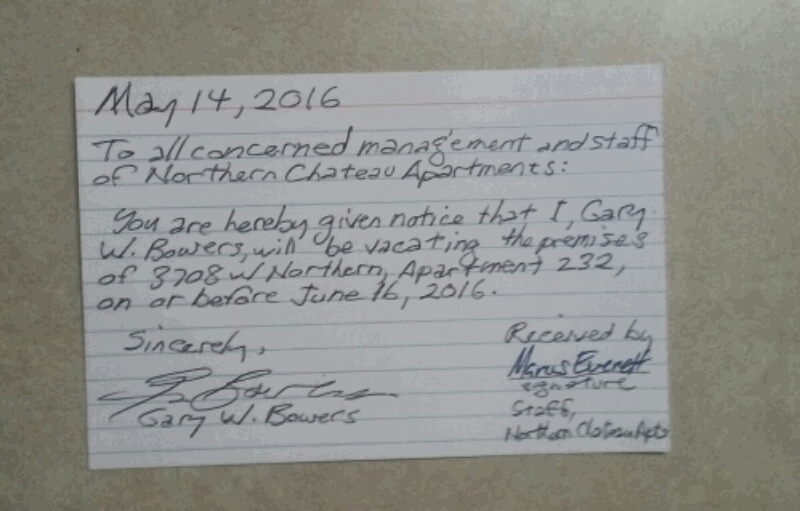 May 14, 2016
To all concerned management and staff
of Northern Chateau Apartments:
You are hereby given notice that I, Gary
W. Bowers, will be vacating the premises
of 3708 W Northern, Apartment 232,
on or before June 16, 2016.
Sincerely,
Gary W. Bowers
Received by
Marus Everett
signature
Staff,
Northern Chateau Apts